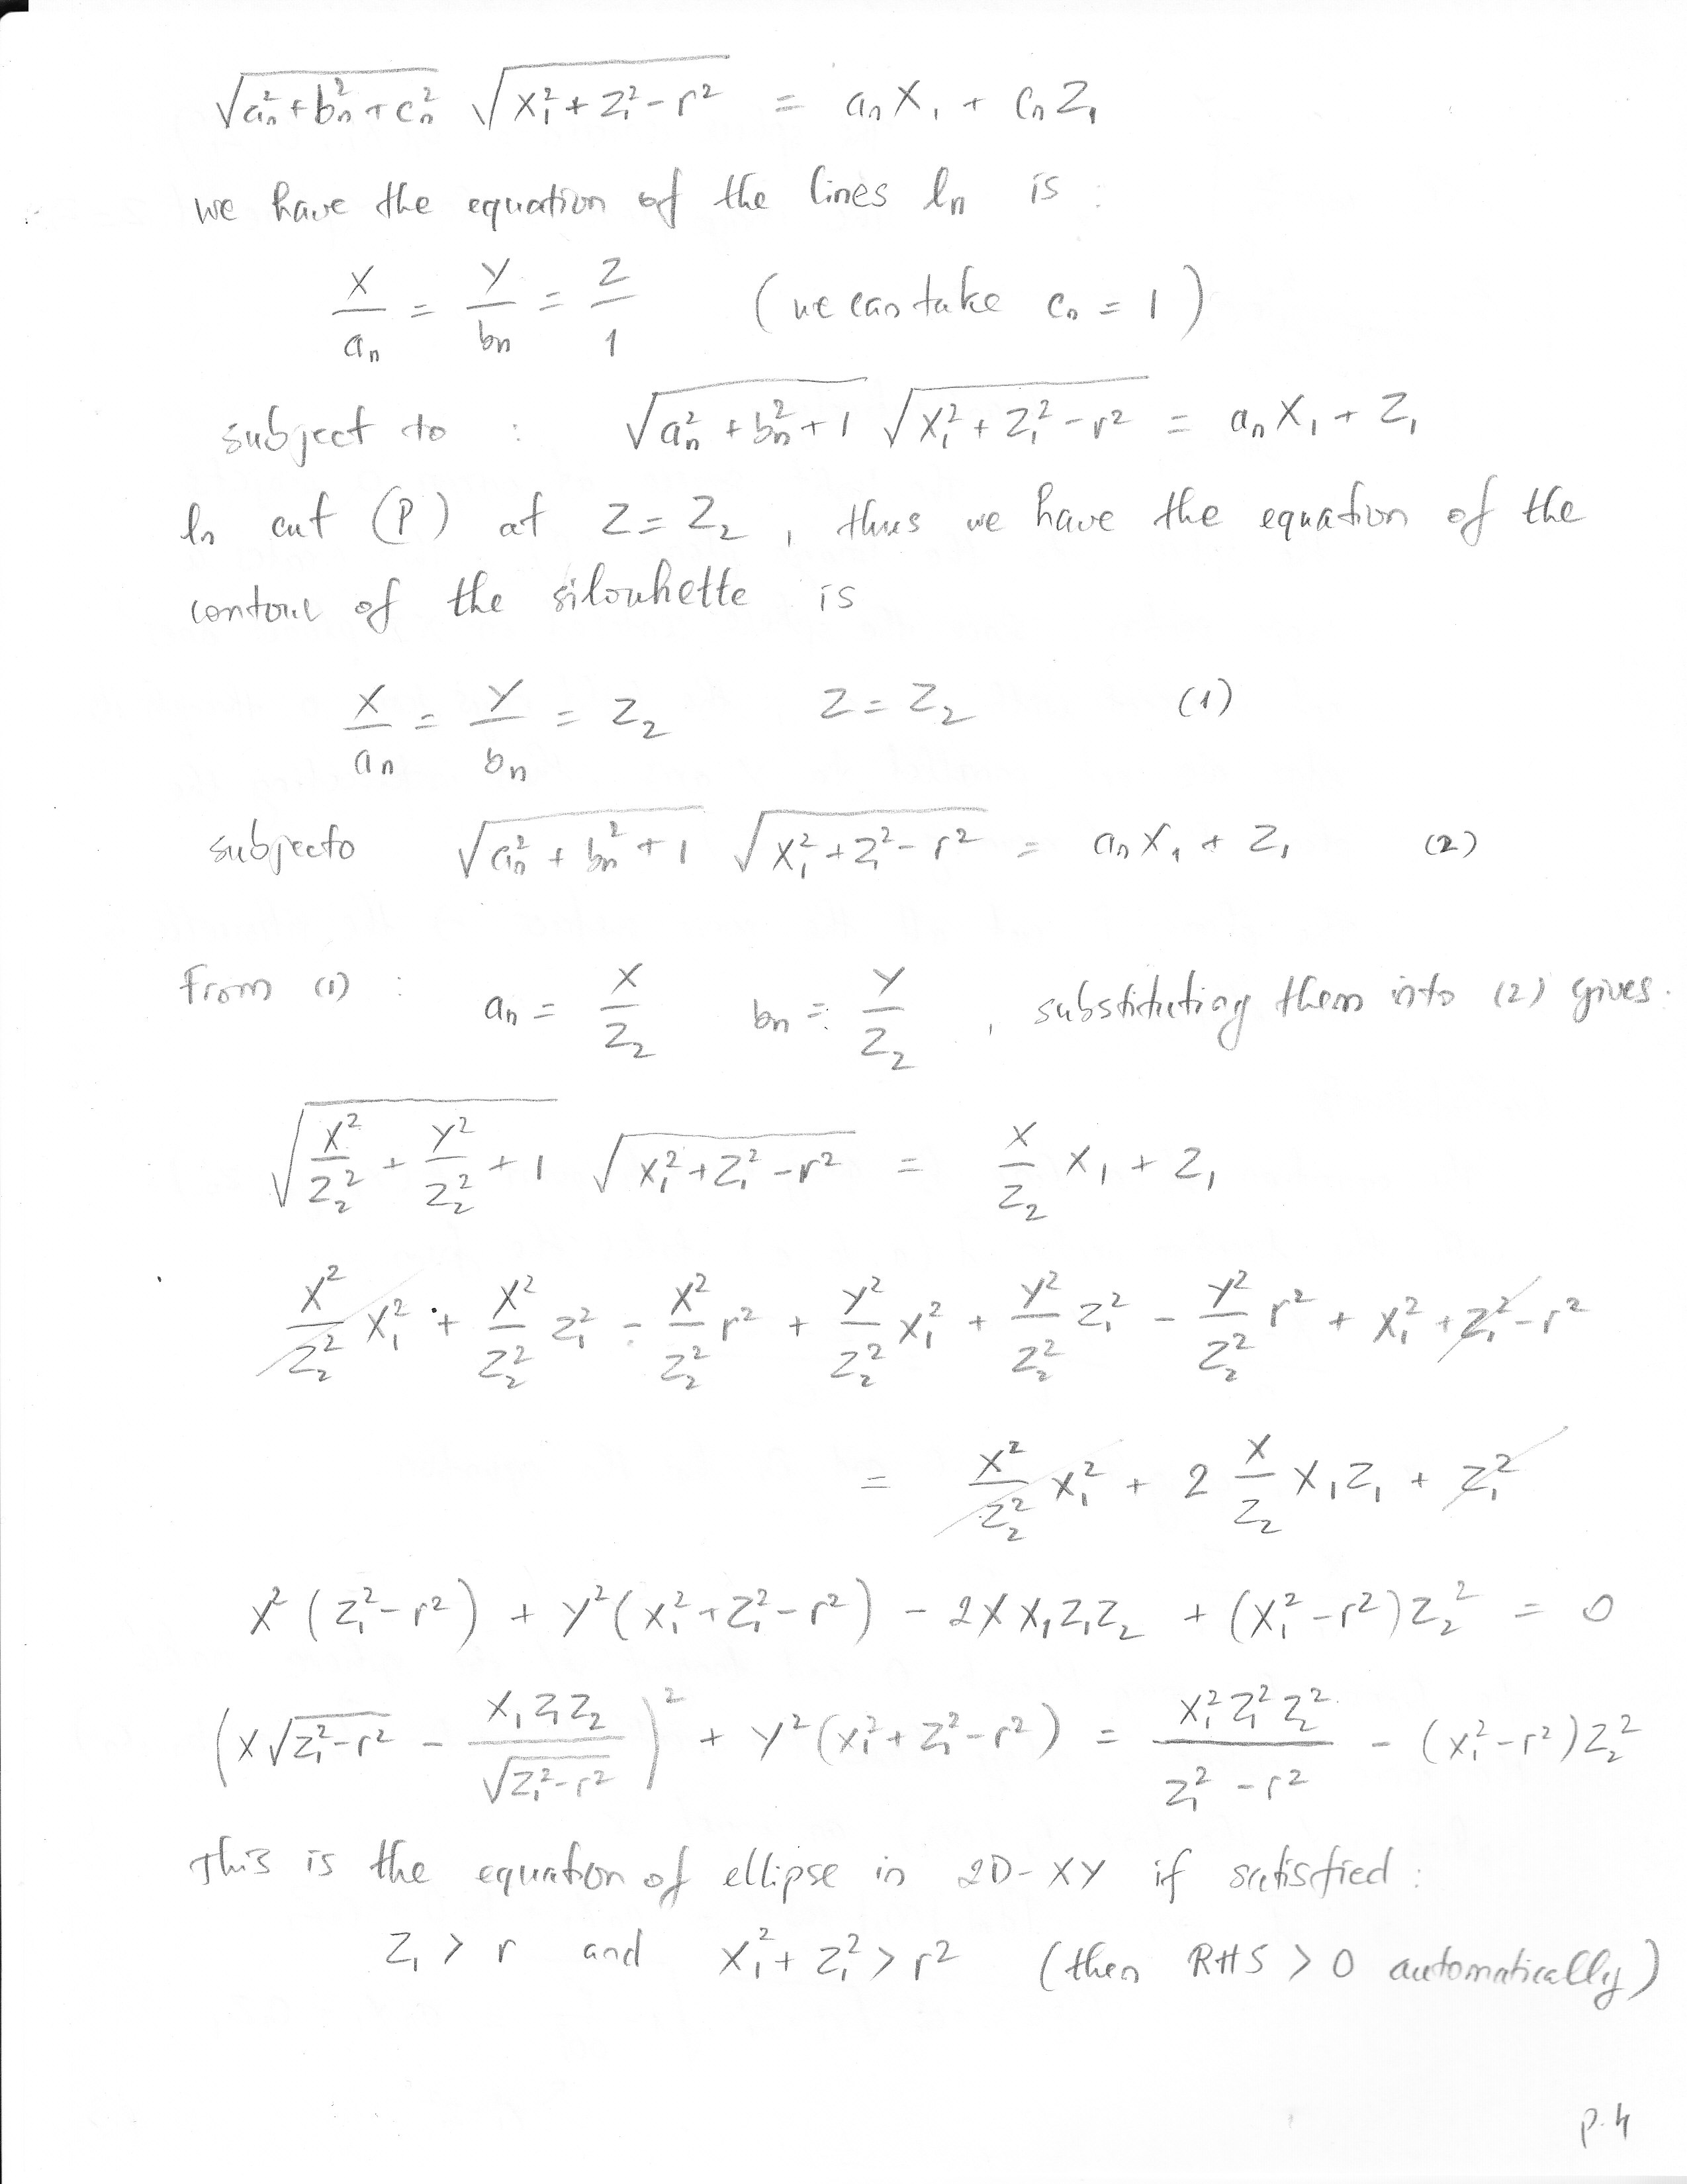 √(aₙ² + bₙ² + cₙ²) √(X₁² + Z₁² - r²) = aₙX₁ + cₙZ₁
we have the equation of the lines lₙ is :
X/aₙ = Y/bₙ = Z/1 (we can take cₙ = 1)
subject to : √(aₙ² + bₙ² + 1) √(X₁² + Z₁² - r²) = aₙX₁ + Z₁
lₙ cut (P) at Z = Z₂, thus we have the equation of the
contour of the silouhette is
X/aₙ = Y/bₙ = Z₂ Z = Z₂ (1)
subjecto √(aₙ² + bₙ² + 1) √(X₁² + Z₁² - r²) = aₙX₁ + Z₁ (2)
From (1) : aₙ = X/Z₂ bₙ = Y/Z₂, substituting them into (2) gives.
√(X²/Z₂² + Y²/Z₂² + 1) √(X₁² + Z₁² - r²) = X/Z₂ X₁ + Z₁
X²/Z₂² X₁² + X²/Z₂² Z₁² - X²/Z₂² r² + Y²/Z₂² X₁² + Y²/Z₂² Z₁² - Y²/Z₂² r² + X₁² + Z₁² - r²
= X²/Z₂² X₁² + 2 X/Z₂ X₁Z₁ + Z₁²
X²(Z₁² - r²) + Y²(X₁² + Z₁² - r²) - 2XX₁Z₁Z₂ + (X₁² - r²)Z₂² = 0
(X√(Z₁² - r²) - X₁Z₁Z₂/√(Z₁² - r²))² + Y²(X₁² + Z₁² - r²) = X₁²Z₁²Z₂²/(Z₁² - r²) - (X₁² - r²)Z₂²
This is the equation of ellipse in 2D-XY if satisfied :
Z₁ > r and X₁² + Z₁² > r² (then RHS > 0 automatically)
p.4